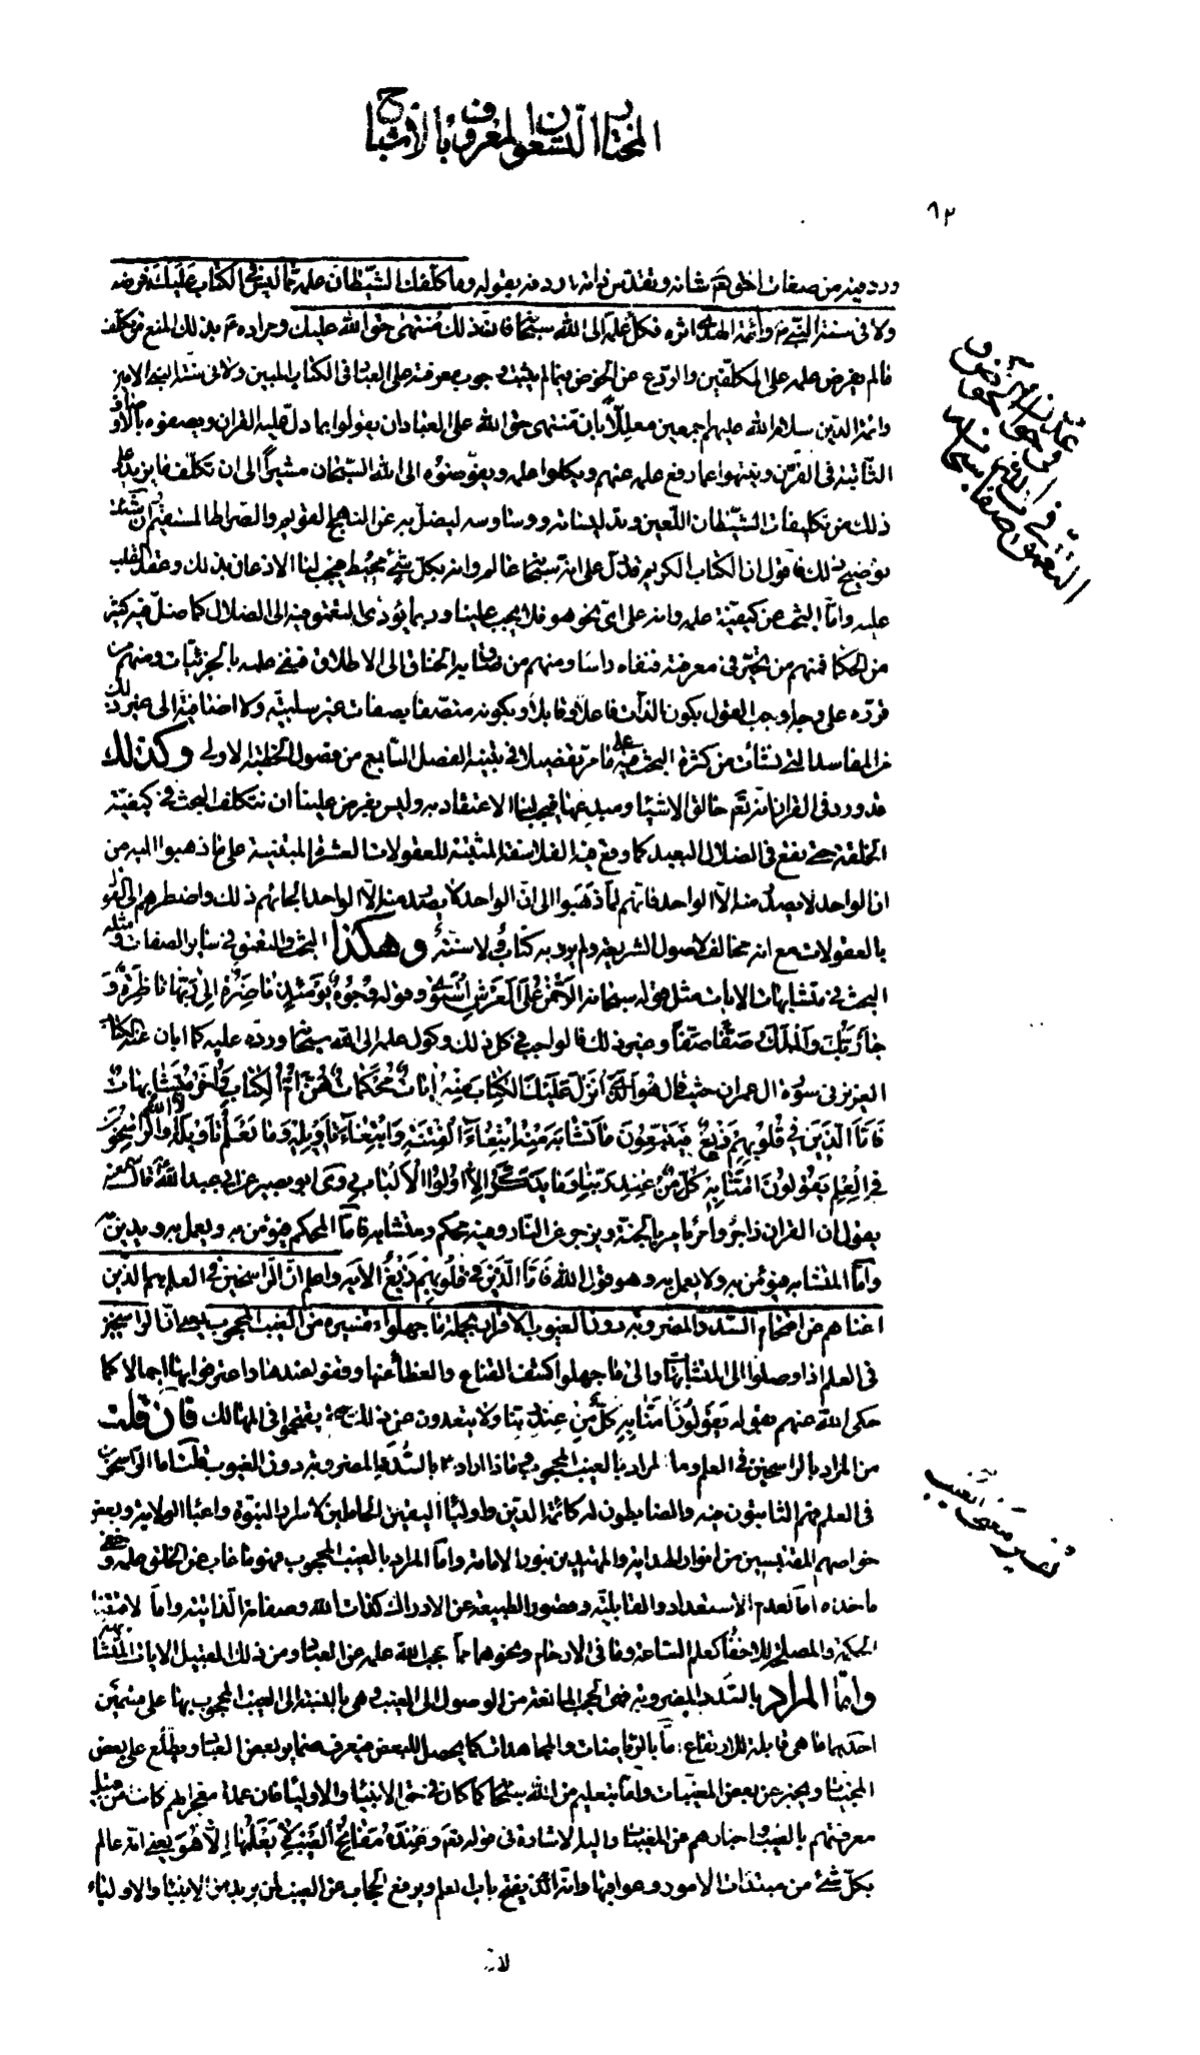 المختار التسعون المعروف بالأشباح
٩٢
ورد فيه من صفات الحق عم شانه وتقدس ذاته وردفه بقوله وما كلفك الشيطان علمه مما ليس في الكتاب عليك فرضه
ولا في سنة النبي ص وائمة الهدى اثره فكل علمه الى الله سبحانه فان ذلك منتهى حق الله عليك ومراده ع بذلك المنع من تكلف
ما لم يفرض علمه على المكلفين والردع عن الخوض فيما لم يثبت وجوب معرفته على العباد في الكتاب المبين ولا في سنة النبي الامين
وائمة الدين سلام الله عليهم اجمعين معللا بان منتهى حق الله على العباد ان يقولوا بما دل عليه القران ويصفوه بالاوصاف
الثابتة في القران وينتهوا عما رفع علمه عنهم ويكلوا علمه ويفوضوه الى الله السبحان مشيرا الى ان تكلف ما يزيد على
ذلك من تكليفات الشيطان اللعين وتدليساته ووساوسه ليضل به عن النهج القويم والصراط المستقيم ان شئت
توضيح ذلك فاقول ان الكتاب الكريم قد دل على انه سبحانه عالم وانه بكل شيء محيط فيجب لنا الاذعان بذلك وعقد القلب
عليه واما البحث عن كيفية علمه وانه على اي نحو هو فلا يجب علينا وربما يؤدي التعمق فيه الى الضلال كما ضل فيه كثير
من الحكماء فمنهم من تحير في معرفته فنفاه راسا ومنهم من ضاق به الخناق الى الاطلاق فنفى علمه بالجزئيات ومنهم من
قرره على وجه اوجب القول بكون الذات فاعلا وقابلا وبكونه متصفا بصفات غير سلبية ولا اضافية الى غير ذلك
من المفاسد التي نشات من كثرة البحث فيه على ما مر تفصيلا في تنبيه الفصل السابع من فصول الخطبة الاولى وكذلك
قد ورد في القران انه تعم خالق الاشياء ومبدعها فيجب لنا الاعتقاد به وليس يفرض علينا ان نتكلف البحث في كيفية
الخلقة حتى نقع في الضلال البعيد كما وقع فيه الفلاسفة المثبتة للعقولات العشر المبتنية على ما ذهبوا اليه من
ان الواحد لا يصدر منه الا الواحد فانهم لما ذهبوا الى ان الواحد لا يصدر منه الا الواحد الجائهم ذلك واضطرهم الى القول
بالعقولات مع انه مخالف لاصول الشريعة ولم يرد به كتاب ولا سنة وهكذا البحث والتعمق في ساير الصفات ومثله
البحث في متشابهات الايات مثل قوله سبحانه الرحمن على العرش استوى وقوله وجوه يومئذ ناضرة الى ربها ناظرة و
جاء ربك والملك صفا صفا وغير ذلك فالواجب في كل ذلك وكول علمه الى الله سبحانه ورده عليه كما ابان عنه الكتاب
العزيز في سورة ال عمران حيث قال هو الذي انزل عليك الكتاب منه ايات محكمات هن ام الكتاب واخر متشابهات
فاما الذين في قلوبهم زيغ فيتبعون ما تشابه منه ابتغاء الفتنة وابتغاء تاويله وما يعلم تاويله الا الله والراسخون
في العلم يقولون امنا به كل من عند ربنا وما يذكر الا اولوا الالباب روى ابو بصير عن ابي عبد الله ع قال سمعته
يقول ان القران زاجر وآمر يامر بالجنة ويزجر عن النار وفيه محكم ومتشابه فاما المحكم فيؤمن به ويعمل به ويدين به
واما المتشابه فيؤمن به ولا يعمل به وهو قول الله فاما الذين في قلوبهم زيغ الاية واعلم ان الراسخين في العلم هم الذين
اغناهم عن اقتحام السدد المضروبة دون الغيوب الاقرار بجملة ما جهلوا تفسيره من الغيب المحجوب يعني ان الراسخين
في العلم اذا وصلوا الى المتشابهات والى ما جهلوا كشف القناع والغطاء عنها وقفوا عندها واعترفوا بها اجمالا كما
حكى الله عنهم بقوله يقولون امنا به كل من عند ربنا ولا يتعدون عن ذلك حتى يقتحموا في المهالك فان قلت
من المراد بالراسخين في العلم وما المراد بالغيب المحجوب وماذا اراد ع بالسدد المضروبة دون الغيوب قلت اما الراسخون
في العلم فهم الثابتون فيه والضابطون له كائمة الدين واولياء اليقين الحاملين لاسرار النبوة واعباء الولاية وبعض
خواصهم المقتبسين من انوار الهداية والمهتدين بنور الامامة واما المراد بالغيب المحجوب فهو ما غاب عن الخلق علمه وخفى
ماخذه اما لعدم الاستعداد والقابلية وقصور الطبيعة عن الادراك كذات الله وصفاته الذاتية واما لاقتضاء
الحكمة والمصلحة للاخفاء كعلم الساعة وما في الارحام ونحوهما مما حجب الله علمه عن العباد ومن ذلك القبيل الايات المتشابهة
واما المراد بالسدد المضروبة فهي الحجب المانعة من الوصول الى الغيب وهي بالنسبة الى الغيب المحجوب بها على قسمين
احدهما ما هي قابلة للارتفاع اما بالرياضات والمجاهدات كما يحصل للبعض فيعرف ضماير بعض العباد ويطلع على بعض
المخبيات ويخبر عن بعض المغيبات واما بتعليم من الله سبحانه كما كان في حق الانبياء والاولياء فان عمدة معجزاتهم كانت من قبيل
معرفتهم بالغيب واخبارهم عن المغيبات واليه الاشارة في قوله تعم وعنده مفاتح الغيب لا يعلمها الا هو يعني انه عالم
بكل شيء من مبتدءات الامور وعواقبها وانه الذي يفتح باب العلم ويرفع الحجاب عن الغيب لمن يريد من الانبياء والاولياء
لانه
في الخوض و
التعمق في صفاته سبحانه
تفسير معنى الغيب